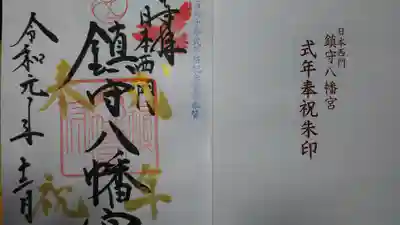 奉拝
日本西門
鎮守八幡宮
式年
奉祝
令和元年十二月
日本西門
鎮守八幡宮
式年奉祝朱印